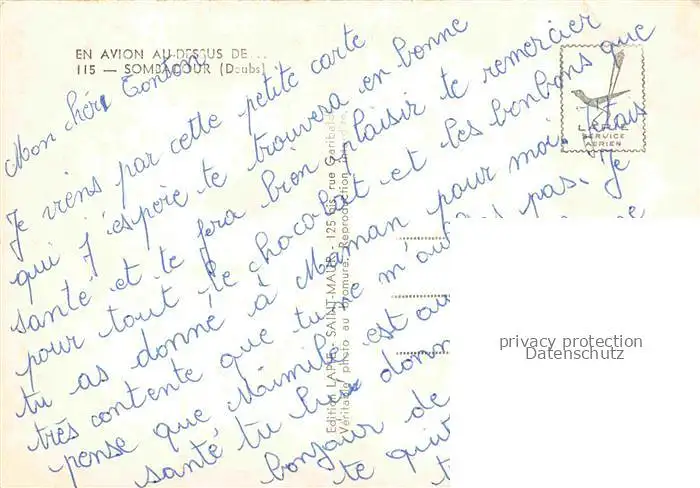 EN AVION AU-DESSUS DE...
115 — SOMBACOUR (Doubs)
LAPIE
SERVICE
AERIEN
Mon chéri Tonton
Je viens par cette petite carte
qui j'espère te trouvera en bonne
santé et te fera bon plaisir te remercier
pour tout le chocolat et les bonbons que
tu as donné à Maman pour moi. J'étais
très contente que tu ne m'oublies pas. Je
pense que Mimile est au
santé, tu lui donn
bonjour de
te quit
Edition LAPIE - SAINT-MAUR - 125 bis, rue Garibaldi
Véritable photo au bromure. Reproduction
privacy protection
Datenschutz